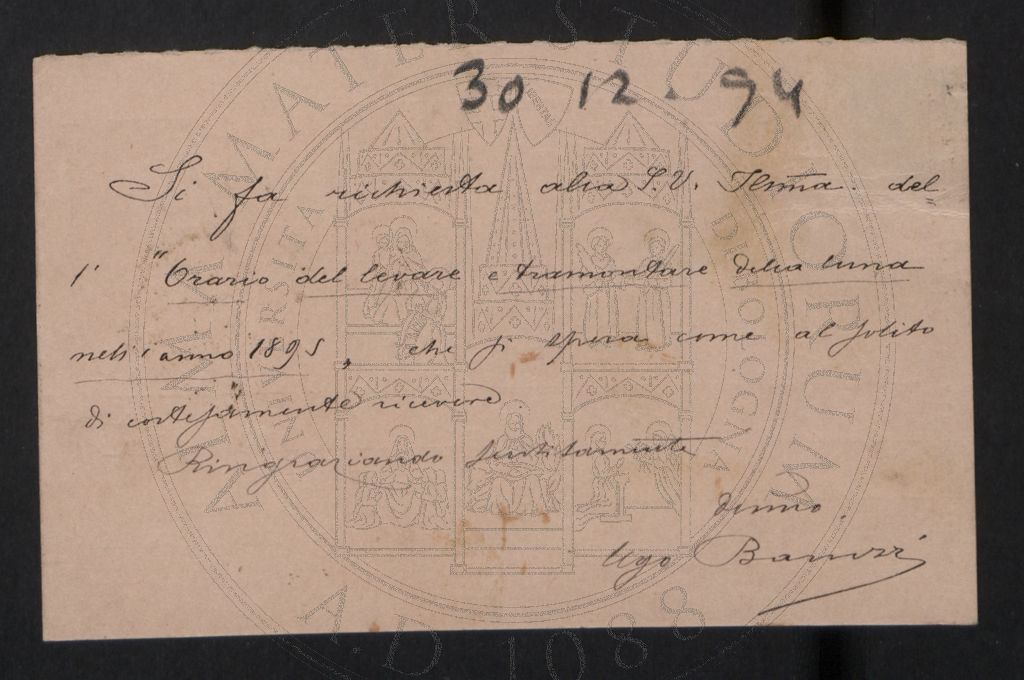 30 12 - 94
Si fa richiesta alla S. V. Illma. del
l' "Orario del levare e tramontare della luna
nell' anno 1895", che si spera come al solito
di cortesamente ricevere
Ringraziando sentitamente
devmo.
Ugo
ALMA MATER STUDIORUM
UNIVERSITÀ DI BOLOGNA
A.D. 1088